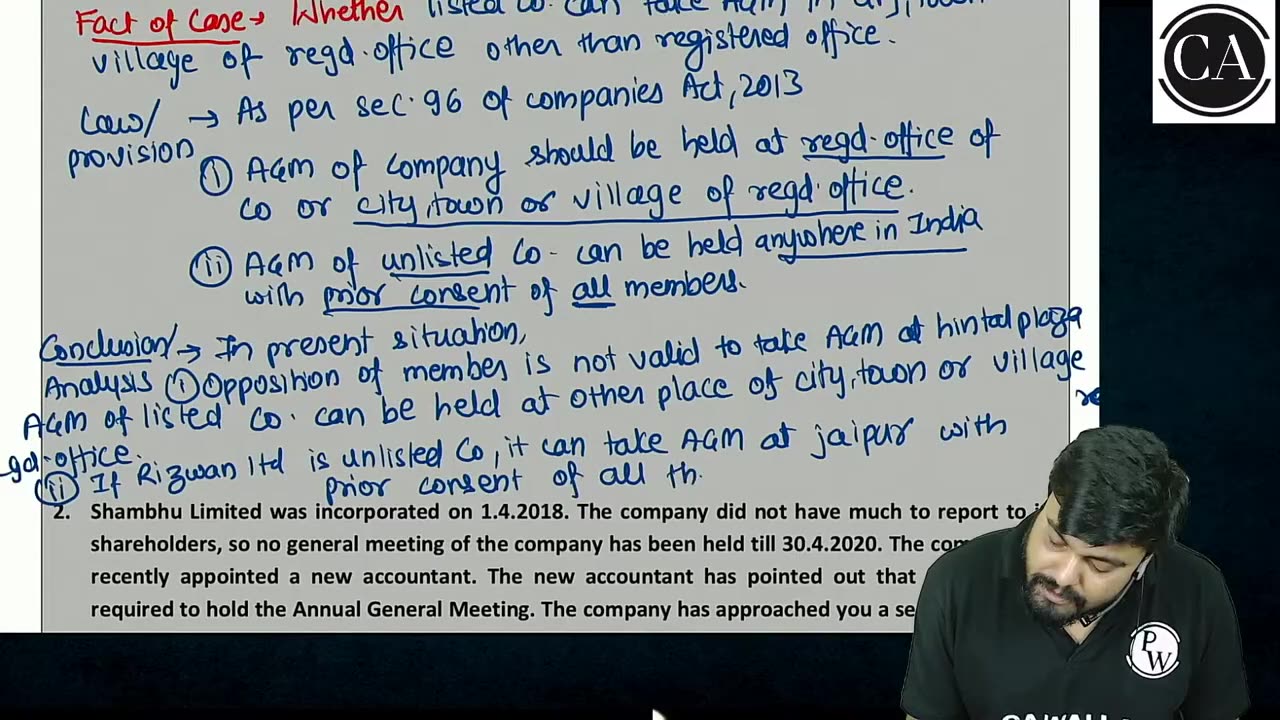 Fact of Case → Whether listed co. can take AGM in city, town
village of regd. office other than registered office.
Law/ → As per sec. 96 of companies Act, 2013
provision
(i) AGM of company should be held at regd. office of
co or city, town or village of regd. office.
(ii) AGM of unlisted Co. can be held anywhere in India
with prior consent of all members.
Conclusion/ → In present situation,
Analysis (i) Opposition of member is not valid to take AGM at hintal plaza
AGM of listed Co. can be held at other place of city, town or village
re
gd. office.
(ii) If Rizwan ltd is unlisted Co, it can take AGM at jaipur with
prior consent of all th
2. Shambhu Limited was incorporated on 1.4.2018. The company did not have much to report to
shareholders, so no general meeting of the company has been held till 30.4.2020. The
recently appointed a new accountant. The new accountant has pointed out that
required to hold the Annual General Meeting. The company has approached you a
CA
P
W